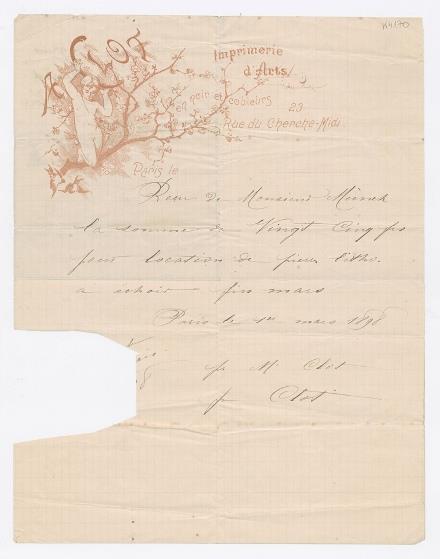 N4170
A. CLOT
Imprimerie
d'Arts
en noir et couleurs
23
Rue du Cherche-Midi
Paris le
Reçu de Monsieur Munch
la somme de Vingt Cinq frs
pour location de pierre litho.
a echoir fin mars
Paris le 1er mars 1898
pr M. Clot
Clot